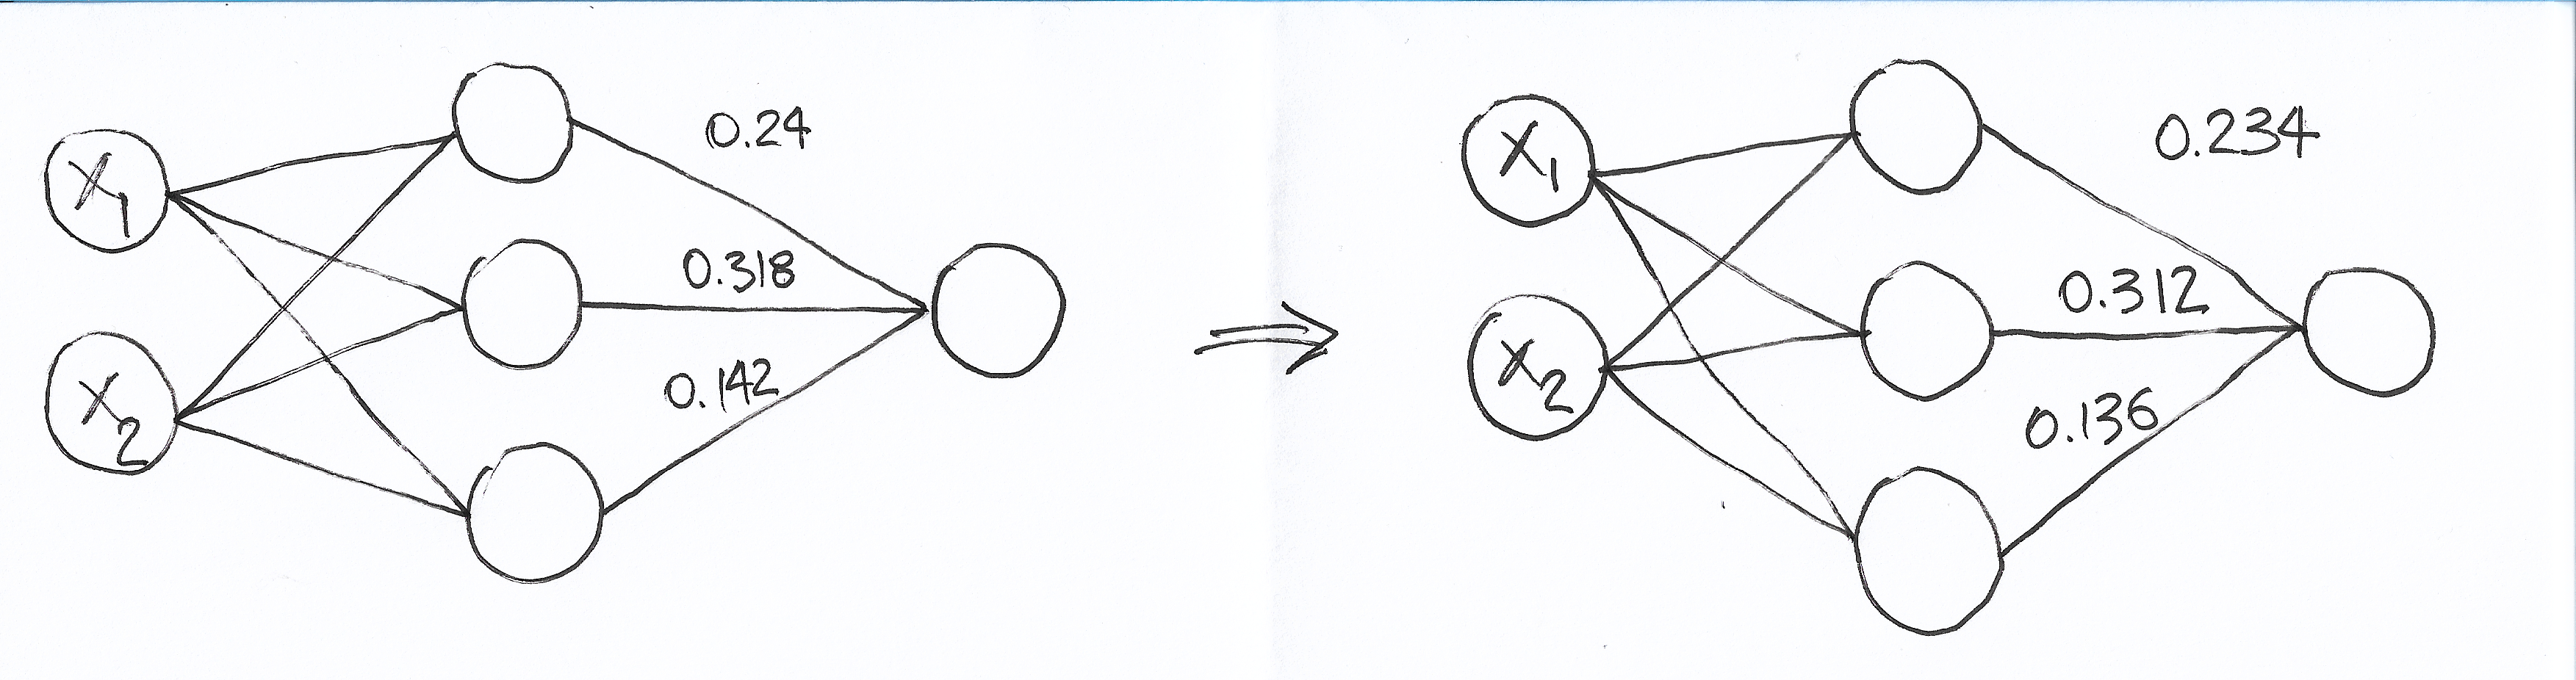 X1
X2
0.24
0.318
0.142
X1
X2
0.234
0.312
0.136